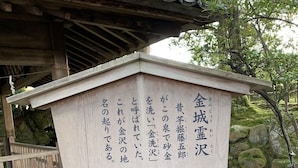 金城霊沢
昔 芋掘藤五郎
がこの泉で砂金
を洗い「金洗沢」
と呼ばれていた。
これが金沢の地
名の起りである。